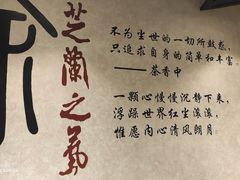 芝蘭之氣
不为尘世的一切所鼓惑，
只追求自身的简单和丰富。
——茶香中
一颗心慢慢沉静下来，
浮躁世界红尘滚滚，
惟愿内心清风朗月。